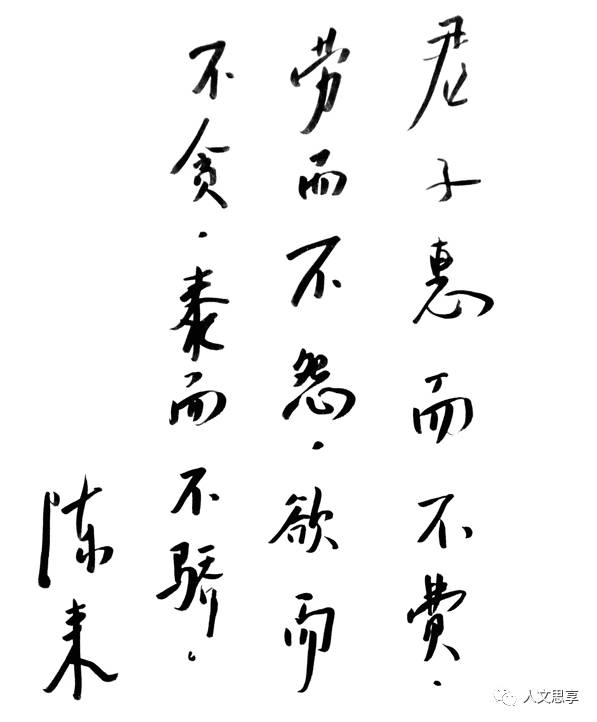 君子惠而不费.
劳而不怨.欲而
不贪.泰而不骄.
陈来
人文思享